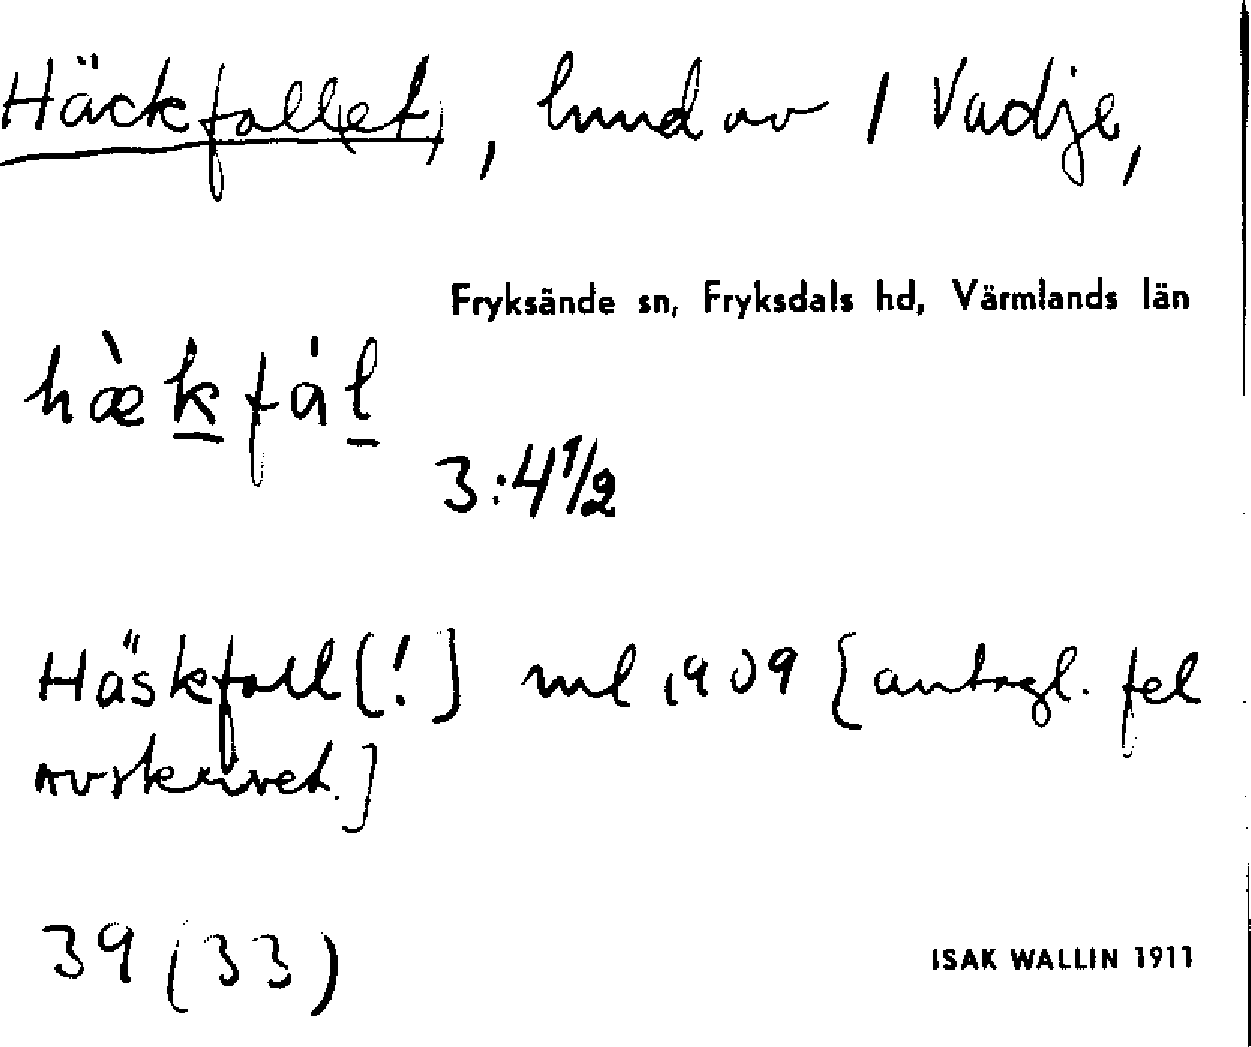 Häckfall(et), hmd av 1 Vadje,
Fryksände sn, Fryksdals hd, Värmlands län
hæ̀kfál
3:4 1/2
Häskfall [!] ml 1909 [antagl. fel
avskrivet.]
39 (33)
ISAK WALLIN 1911